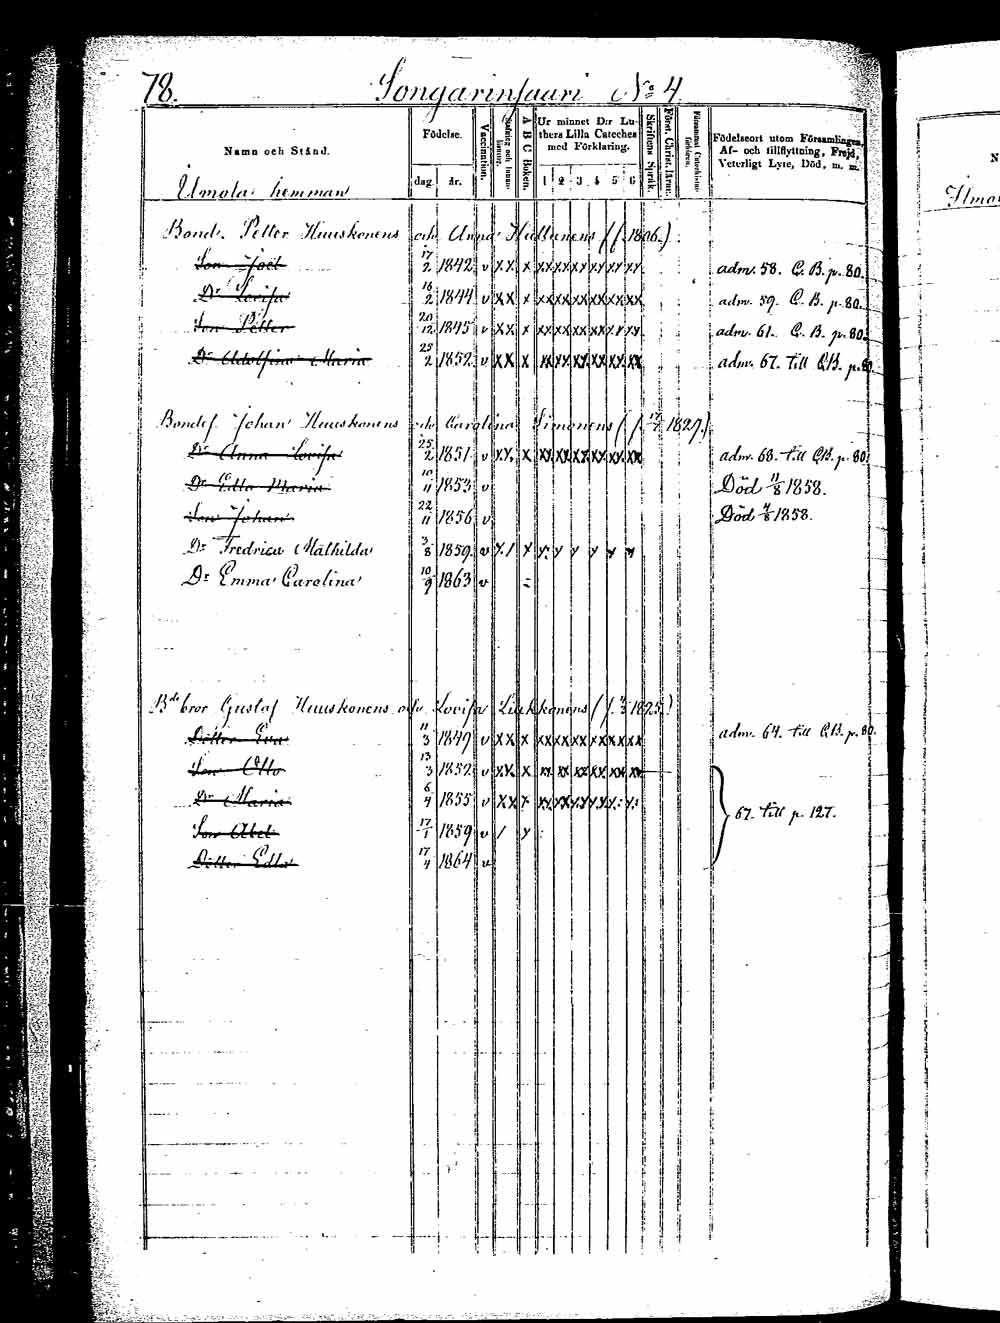 78. Songarinsaari No 4
Namn och Stånd.
Födelse.
dag. år.
Vaccination.
A B C Boken.
Ur minnet D:r Luthers Lilla Cateches med Förklaring.
1 2 3 4 5 6
Skriftens Språk.
Först. Christ. Lärnr.
Födelseort utom Församlingen, Af- och tillflyttning, Frejd, Veterligt Lyte, Död, m. m.
hemman
Petter Huuskonens och Anna (f. 1806.)
Son Joel 17/2 1842 v x x x x x x x x x x x x x x x adm. 58. C. B. p. 80.
Dr Lovisa 16/2 1844 v x x x x x x x x x x x x x x x adm. 59. C. B. p. 80.
Son Petter 20/12 1845 v x x x x x x x x x x x x x x x adm. 61. C. B. p. 80.
Dr Adolfina Maria 25/2 1852 v x x x x x x x x x x x x x x x adm. 67. till C.B. p. 80
Johan Huuskonens och Carolina Simonens 1827.)
Dr Anna Lovisa 25/2 1851 v x x x x x x x x x x x x x x x adm. 68. till C.B. p. 80.
Dr Edla Maria 10/11 1853 v Död 11/8 1858.
Son Johan 22/11 1856 v Död 4/8 1858.
Dr Fredrica Mathilda 3/8 1859. v x / x x x x x x x
Dr Emma Carolina 10/9 1863 v
bror Gustaf Huuskonens och Lovisa 1825.)
Dotter Eva 11/3 1849 v x x x x x x x x x x x x x x x adm. 64. till C.B. p. 80.
Son Otto 13/3 1852 v x x x x x x x x x x x x x x x
Dr Maria 6/4 1855 v x x x x x x x x x x x x x
67. till p. 127.
Son Abel 17/1 1859 v / x
Dotter Edla 17/4 1864 v